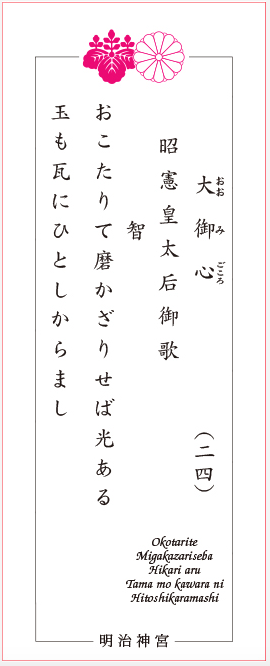 大御心
おおみごころ
(二四)
昭憲皇太后御歌
智
おこたりて磨かざりせば光ある
玉も瓦にひとしからまし
Okotarite
Migakazariseba
Hikari aru
Tama mo kawara ni
Hitoshikaramashi
明治神宮